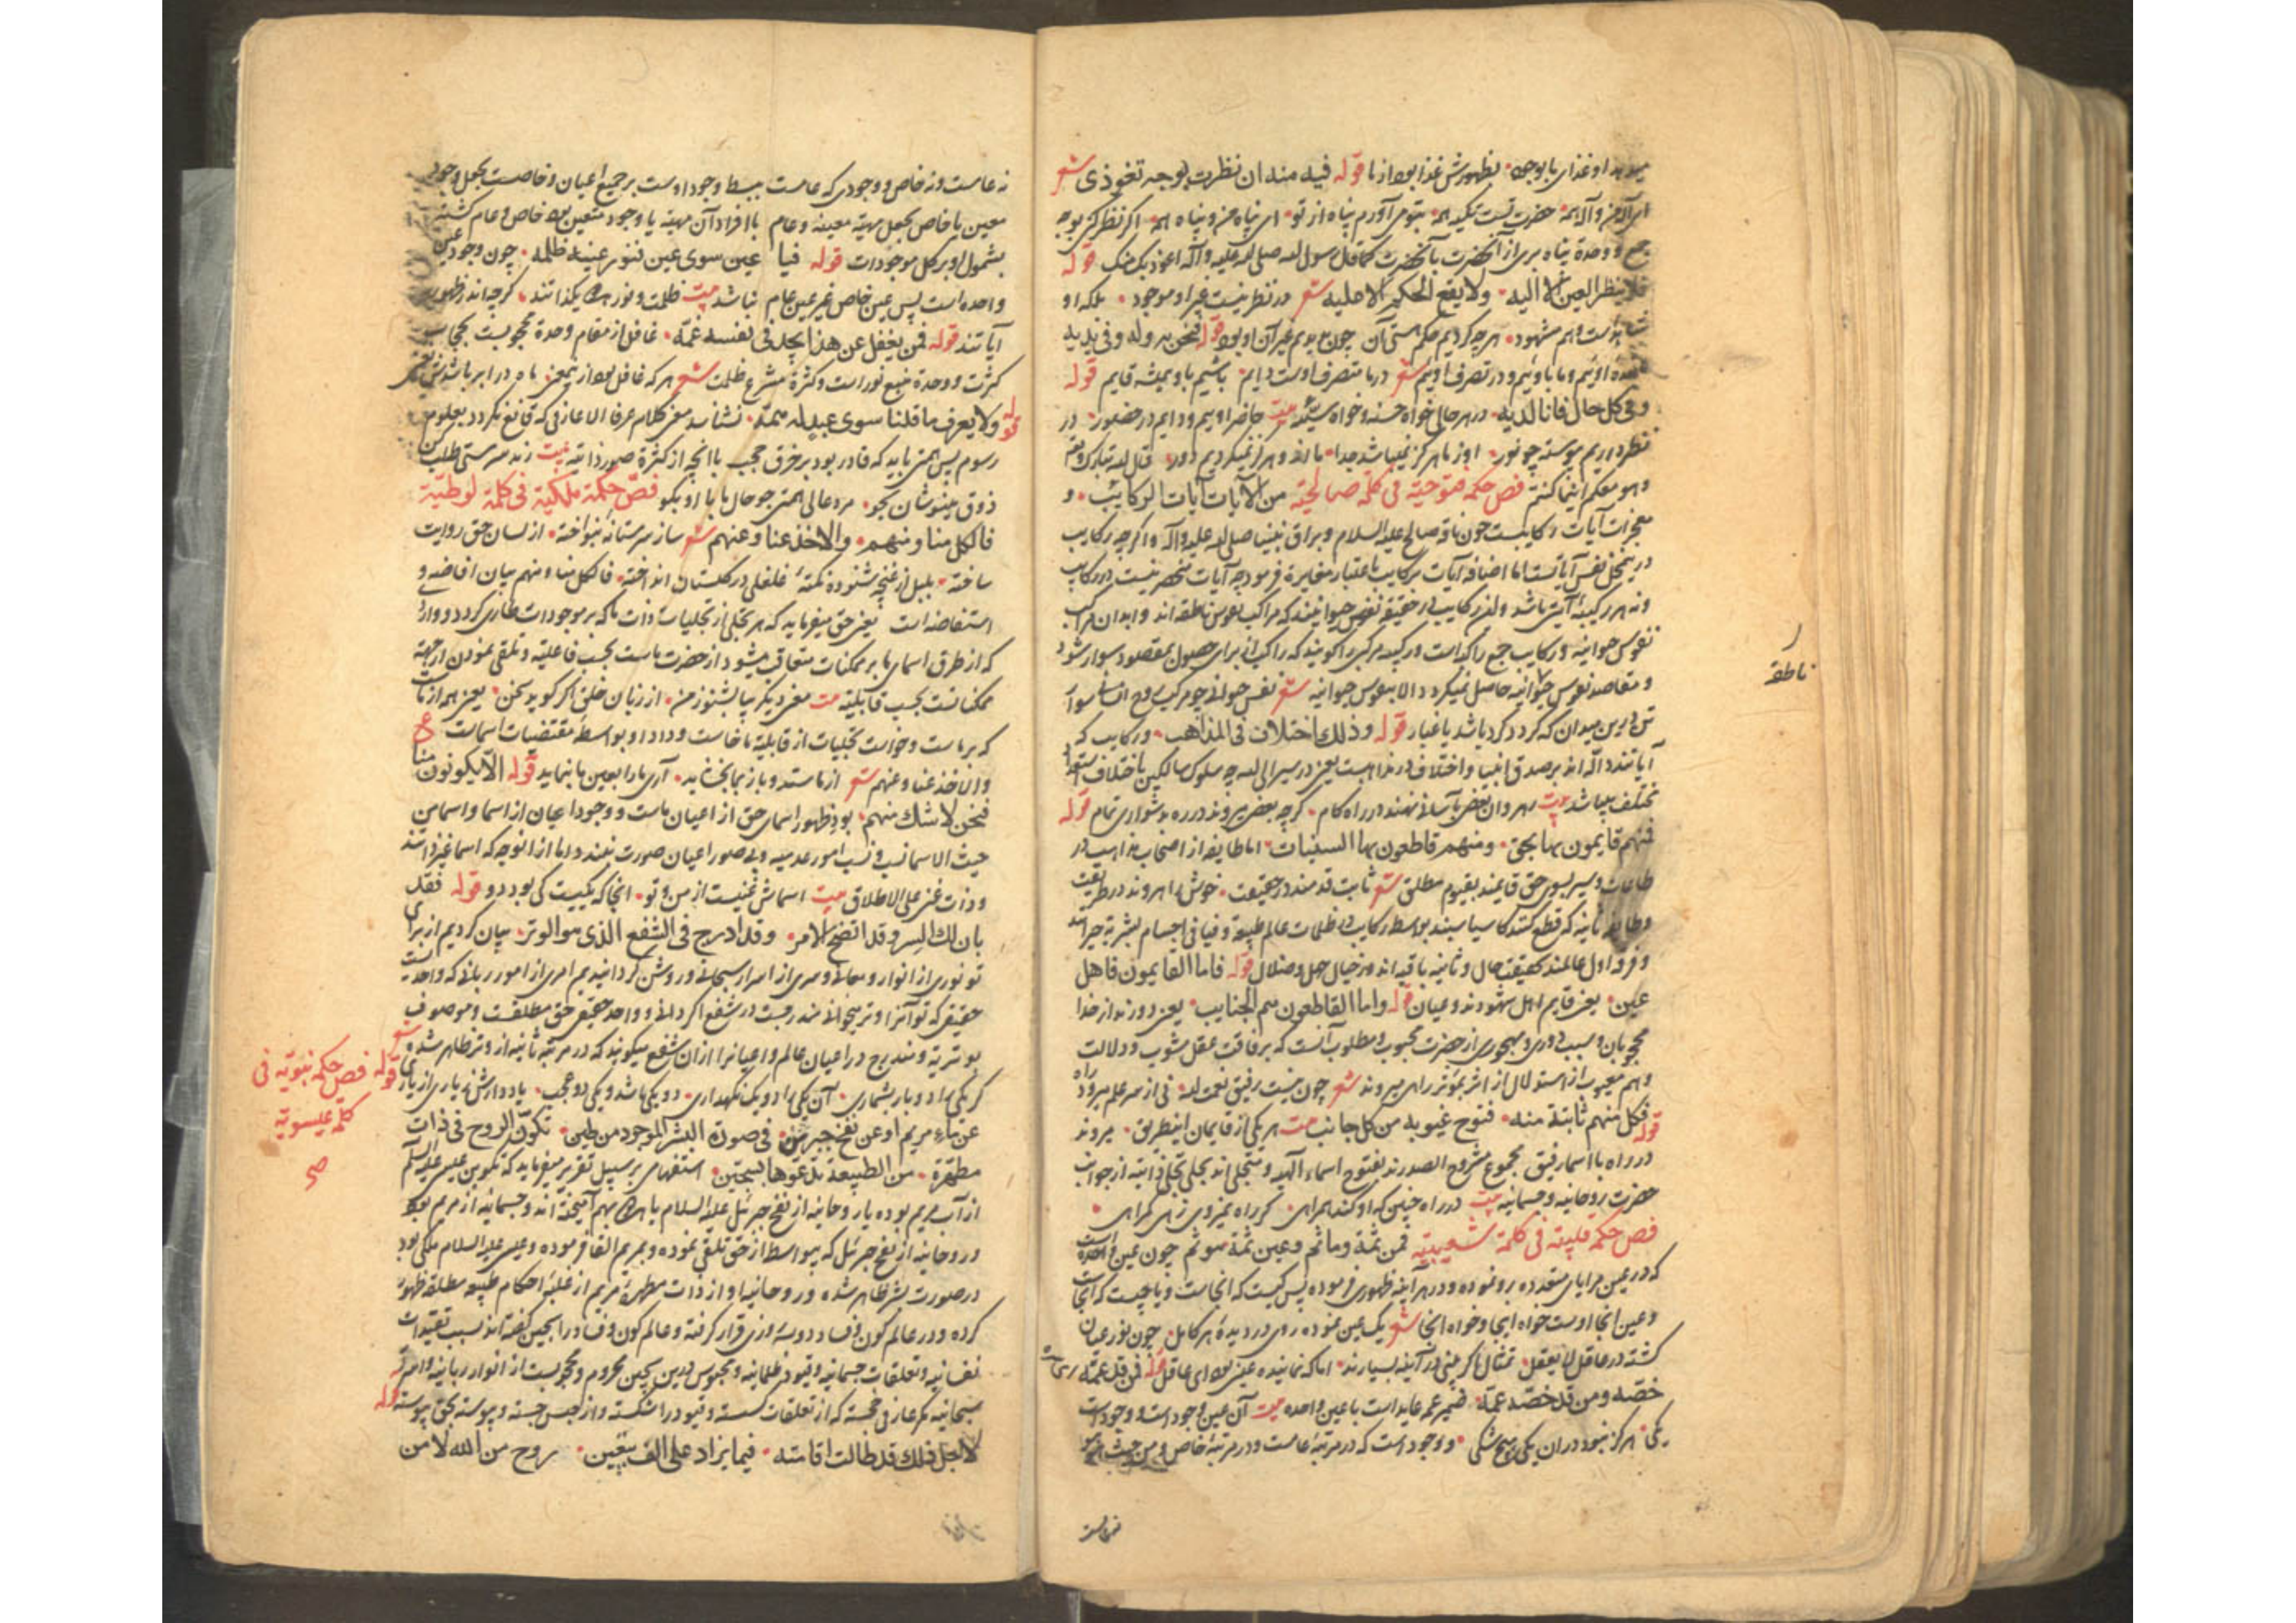 میدهد او غذای ما بوجه نظهورش غذا بود از ما قوله فیه منه ان نظرت بوجه تعوذی شعر
ای آله من و آله همه حضرت تست تکیه همه بتو می آورم پناه از تو ای پناه من و پناه همه اگر نظر کنی بوجه
جمع و وحدة پناه بری از آنحضرت بآنحضرت کما قال رسول الله صلی الله علیه وآله اعوذ بک منک قوله
فلا ینظر العین الا الیه ولا یقع الحکم الا علیه شعر در نظر نیست غیر او موجود بلکه او
شاهدست و هم مشهود هر چه کردیم حکم هستی آن چون بدیدیم غیر آن او بود قوله فنحن له وبه وفی یدیه
اوئیم و ما باوئیم و در تصرف اوئیم شعر در ما متصرف اوست دایم باشیم باو همیشه قایم قوله
وفی کل حال فانا لدیه در هر حالی خواه حسنه و خواه سیئه بیت حاضر اوییم و دایم در حضور در
نظر داریم پیوسته چو نور او ز ما هرگز نمیباشد جدا ما ازو هرگز نمیگردیم دور قال الله تبارک وتعالی
وهو معکم اینما کنتم فص حکمة فتوحیة فی کلمة صالحیة من الآیات آیات الرکائب و
معجزات آیات رکایبست چون ناقه صالح علیه السلام و براق نبینا صلی الله علیه وآله واگرچه رکایب
درین محل نفس آیاتست اما اضافه آیات برکایب باعتبار مغایرة فرمود چه آیات منحصر نیست در رکایب
ونه هر رکیبه آیتی باشد ولفظ رکایب در حقیقة نفوس حیوانیند که مراکب نفوس ناطقه اند وابدان مراکب
نفوس حیوانیه و رکایب جمع رکیبه است و رکیبه مرکبی را گویند که راکب آن برای حصول مقصود سوار شود
و مقاصد نفوس حیوانیه حاصل نمیگردد الا بنفوس حیوانیه شعر نفس حیوانی چو مرکب روح انسان سوار
تن درین میدان که گردد گرد باشد یا غبار قوله وذلک اختلاف فی المذاهب ورکایب که
آیاتند دالّه اند بر صدق انبیا و اختلاف در مذاهبست یعنی در سیر الی الله چه سلوک سالکین باختلاف استعداد
مختلف میباشد بیت رهروان بعضی بآسانی نهند در راه گام گرچه بعضی میروند در ره بدشواری تمام قوله
فمنهم قایمون بها بحق ومنهم قاطعون بها السباسب اما طایفه از اصحاب مذاهب در
طاعات و سیر بسوی حق قایمند بقیوم مطلق شعر ثابت قدمند در حقیقت خوش راهروند در طریقت
و طایفه ثانیه که قطع کنند کاسیاسبند بواسطه رکایب در ظلمات عالم طبیعة و فیافی اجسام بشریة حیرانند
و فرقه اول عالمند بحقیقت حال و ثانیه باقیه اند در خیال جهل و ضلال قوله فاما القایمون فاهل
عین یعنی قایم اهل شهودند و عیان قوله واما القاطعون هم الجنایب یعنی دورند از خدا
محجوبان و سبب دوری و مهجوری از حضرت محبوب و مطلوب آنست که برفاقت عقل مشوب و دلالت
وهم معیوب از استدلال از اثر بمؤثر راهی میروند شعر چون نیست رفیق نعمت الله نی از سر علم میرود راه
قوله فکل منهم ثابتة منه فتوح غیوبه من کل جانب بیت هر یکی از قایمان این طریق میروند
در راه با اسما رفیق مجموع مشروح الصدورند بفتوح اسماء الهی و متجلی اند بتجلی ذاتیه از جوانب
حضرت روحانیه و جسمانیه بیت در راه چنین که او کند همراهی گر راه نمیروی زهی گمراهی
فص حکمة قلبیة فی کلمة شعیبیة فمن ثمة وما ثم وعین ثمة هو ثم چون عین واحده است
که در عین مرایای متعدده رو نموده و در هر آینه ظهوری فرموده پس کیست که آنجاست و یا چیست که آنجاست
و عین آنجا اوست خواه اینجا و خواه آنجا شعر یک عین نموده روی در دیده هر کامل چون نور عیان
گشته در عاقل لا یعقل تمثال اگر بینی در آینه بسیارند اما که نماینده عینی بود ای عاقل قوله فمن قد عمه
خصّه ومن قد خصّه عمّه ضمیر عمه عایدست با عین واحده بیت آن عین وجودست و وجودست
یکی هرگز نبود در آن یکی هیچ شکی و وجودست که در مرتبه عامست و در مرتبه خاص و من حیث هو
ناطقه
نه عامست و نه خاص و وجودی که عامست ببسط وجود اوست بر جمیع اعیان و خاصست بجعل وجود
معین یا خاص بجعل مهیة معینه و عام با افراد آن مهیة یا وجود متعین بود خاص و عام گشته
بشمول او بر کل موجودات قوله فما عین سوی عین فنور عینه ظلمة چون وجود عین
واحده است پس عین خاص غیر عین عام نباشد بیت ظلمت و نور هر دو یک ذاتند گرچه اندر ظهور
آیاتند قوله فمن یغفل عن هذا یجد فی نفسه غمّه غافل از مقام وحدة محجوبست بحجاب
کثرت و وحدة منبع نور است و کثرة مشرع ظلمت شعر هر که غافل بود ازین معنی ماه در ابر باشدش یعنی
قوله ولا یعرف ما قلنا سوی عبد له همّه نشناسد مغز کلام عرفا الا عارفی که قانع نگردد بعلوم
رسوم پس همتی باید که قادر بود بر خرق حجب با آنچه از کثرة صور ذاتیه بیت رند سرمستی طلب کن
ذوق میخوشان بجو مرد عالی همتی جو حال ما با او بگو فص حکمة ملکیة فی کلمة لوطیّة
فالکل منا ومنهم والاخذ عنا وعنهم شعر ساز سرمستانه بنواخته از لسان حق روایت
ساخته بلبل از غنچه شنوده نکته غلغلی در گلستان انداخته فالکل منا ومنهم بیان افاضه و
استفاضه است یعنی حق میفرماید که هر تجلی از تجلیات ذات ما که بر موجودات طاری گردد و وارد
که از طرق اسمای ما بر ممکنات متعاقب میشود از حضرت ماست بحسب فاعلیة و تلقی نمودن از جهة
ممکناتست بحسب قابلیة بیت مغز دیگر بیا بشنو ز من از زبان خلق اگر گوید سخن یعنی هم از ماست
که بر ماست و خواست تجلیات از قابلیة ما خاست و داد او بواسطه مقتضیات اسماست ع
والاخذ عنا وعنهم شعر از ما ستد و باز بما بخشاید آری ما را بعین ما بنماید قوله الا یکونون منا
فنحن لا شک منهم بود ظهور اسمای حق از اعیان ماست و وجود اعیان از اسما و اسما من
حیث الاسما نسبند و نسب امور عدمیه و بی صور اعیان صورت نبندد اما از آن وجه که اسما غیر ذاتند
و ذات غنی علی الاطلاق بیت اسماش غنیست از من و تو آنجا که یکیست کی بود دو قوله فقد
بان لک السر وقد اتضح الامر وقد ادرج فی الشفع الذی هو الوتر بیان کردیم از برای
تو نوری از انوار روحانی و سری از اسرار سبحانی و روشن گردانیدیم امری از امور ربانی که واحدیست
حقیقی که تو آنرا وتر میخوانی مندرجست در شفع اگر دانی و واحد حقیقی حق مطلقست و موصوف
بوتریة و مندرج در اعیان عالم و اعیان را از آن شفع میگویند که در مرتبه ثانیه از وتر ظاهر شد شعر
گر یکی را دو بار بشماری آن یکی را دو یک نگهداری دو یکی باشد و یکی دو عجب یاد دارش ز یاری از یاری قوله
فص حکمة نبویة فی
کلمة عیسویة
صح
عن ماء مریم او عن نفخ جبرین فی صورة البشر الموجود من طین تکوّن الروح فی ذات
مطهّرة من الطبیعة تدعوها بسجین استفهامی بر سبیل تقریر میفرماید که تکوین عیسی علیه السلم
از آب مریم بوده یا روحانیه از نفخ جبرئیل علیه السلام یا هر دو بهم آمیخته اند و جسمانیه از مریم بود
و روحانیه از نفخ جبرئیل که بیواسطه از حق تلقی نموده و بمریم القا فرموده و عیسی علیه السلام ملکی بود
در صورت بشر ظاهر شده و روحانیه او از ذات مطهرة مریم از غلبه احکام طبیعه مطلقه ظهور
کرده و در عالم کون و فساد دو سه روزی قرار گرفته و عالم کون و فساد را بسجین گفته اند بسبب تقیدات
نفسانیه و تعلقات جسمانیه و قیود ظلمانیه و محبوس درین سجین محروم و محجوبست از انوار ربانیه و اسرار
سبحانیه مگر عارفی خجسته که از تعلقات گسسته و قیود را شکسته و از حبس جسته و پیوسته بحق پیوسته قوله
لاجل ذلک قد طالت اقامته فیها یزاد علی الف بتعیین روح من الله لا من